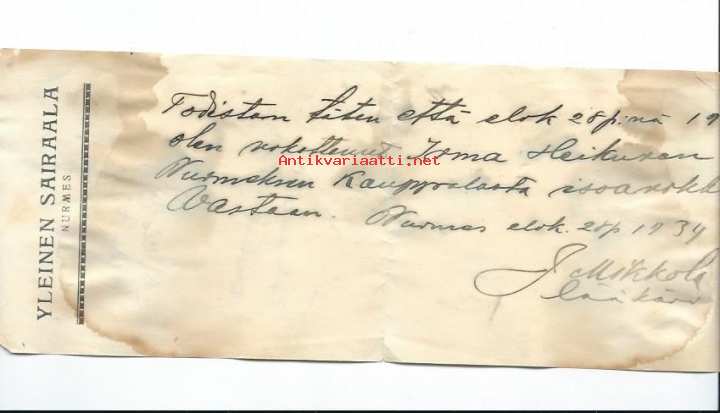 YLEINEN SAIRAALA
NURMES
Todistan täten että elok. 28 p:nä 19
olen rokottanut Irma Heikuran
Antikvariaatti.net
Nurmeksen kauppalasta isoarokk
vastaan. Nurmes elok. 28 p 1934
J. Mikkola
lääkäri